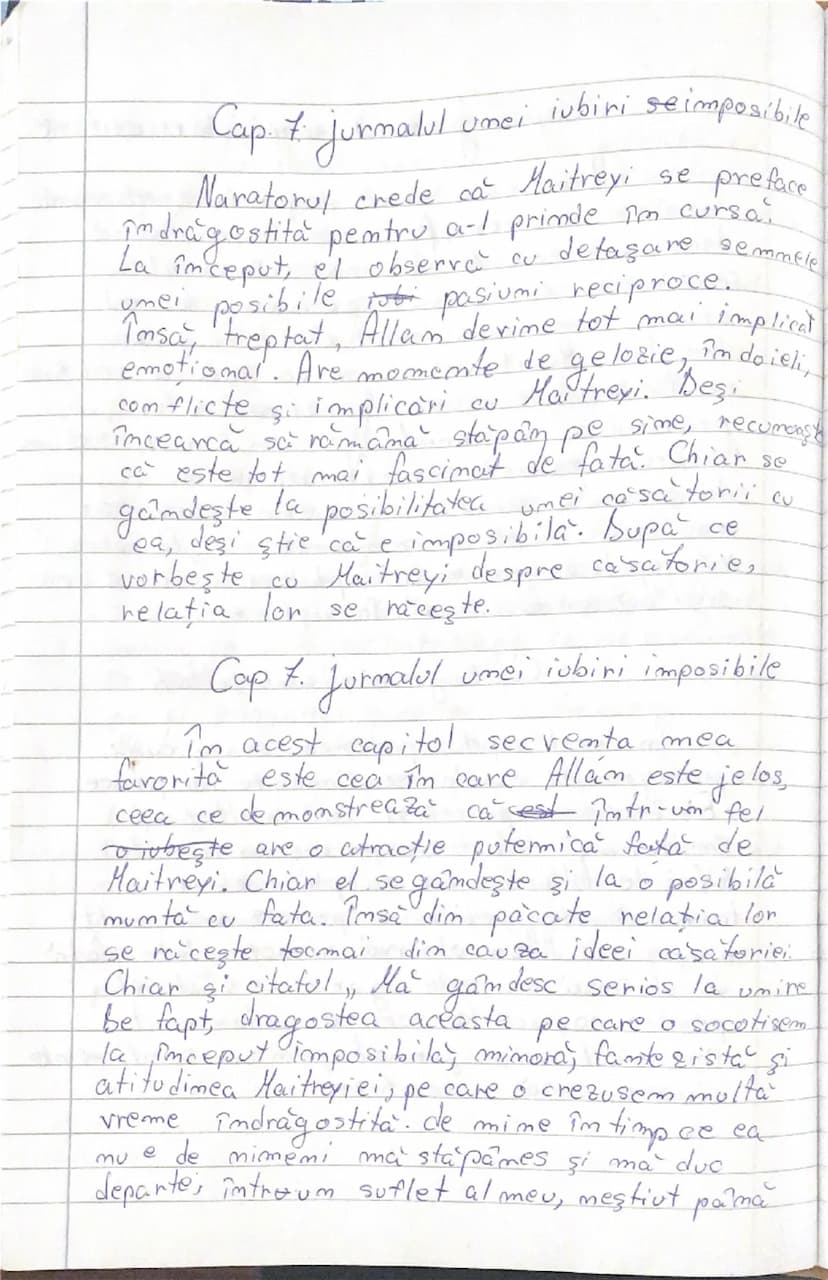 Cap. 7. jurnalul unei iubiri se imposibile
Naratorul crede că Maitreyi se preface
îndrăgostită pentru a-l prinde în cursă.
La început, el observă cu detașare semnele
unei posibile iubi pasiuni reciproce.
Însă, treptat, Allan devine tot mai implicat
emoțional. Are momente de gelozie, îndoieli,
conflicte și implicări cu Maitreyi. Deși
încearcă să rămână stăpân pe sine, recunoaște
că este tot mai fascinat de fată. Chiar se
gândește la posibilitatea unei căsătorii cu
ea, deși știe că e imposibilă. După ce
vorbește cu Maitreyi despre căsătorie,
relația lor se răcește.
Cap 7. jurnalul unei iubiri imposibile
În acest capitol secvența mea
favorită este cea în care Allan este jelos,
ceea ce demonstrează că est într-un fel
o iubește are o atracție puternică față de
Maitreyi. Chiar el se gândește și la o posibilă
nuntă cu fata. Însă din păcate relația lor
se răcește tocmai din cauza ideei căsătoriei.
Chiar și citatul „Mă gândesc serios la unire
De fapt, dragostea aceasta pe care o socotisem
la început imposibilă, minoră, fantezistă și
atitudinea Maitreyiei, pe care o crezusem multă
vreme îndrăgostită. de mine în timp ce ea
nu e de nimeni mă stăpânes și mă duc
departe, într-un suflet al meu, neștiut până